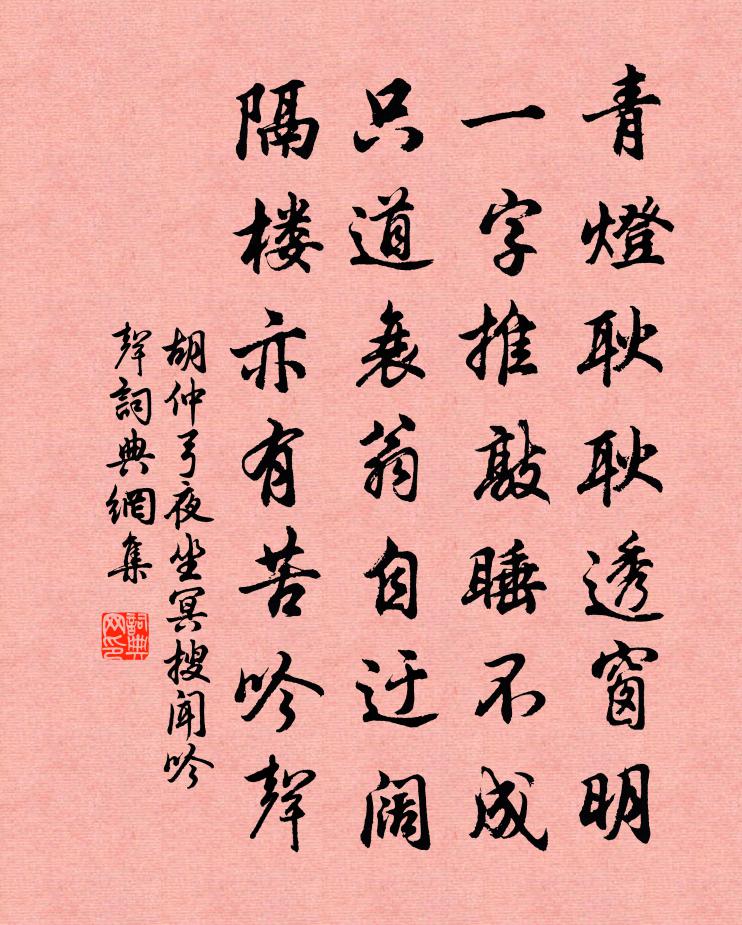 青燈耿耿透窗明
一字推敲睡不成
只道衰翁自迂阔
隔楼亦有苦吟聲
胡仲弓夜坐冥搜闻吟
聲詞典網集
詞典
网印